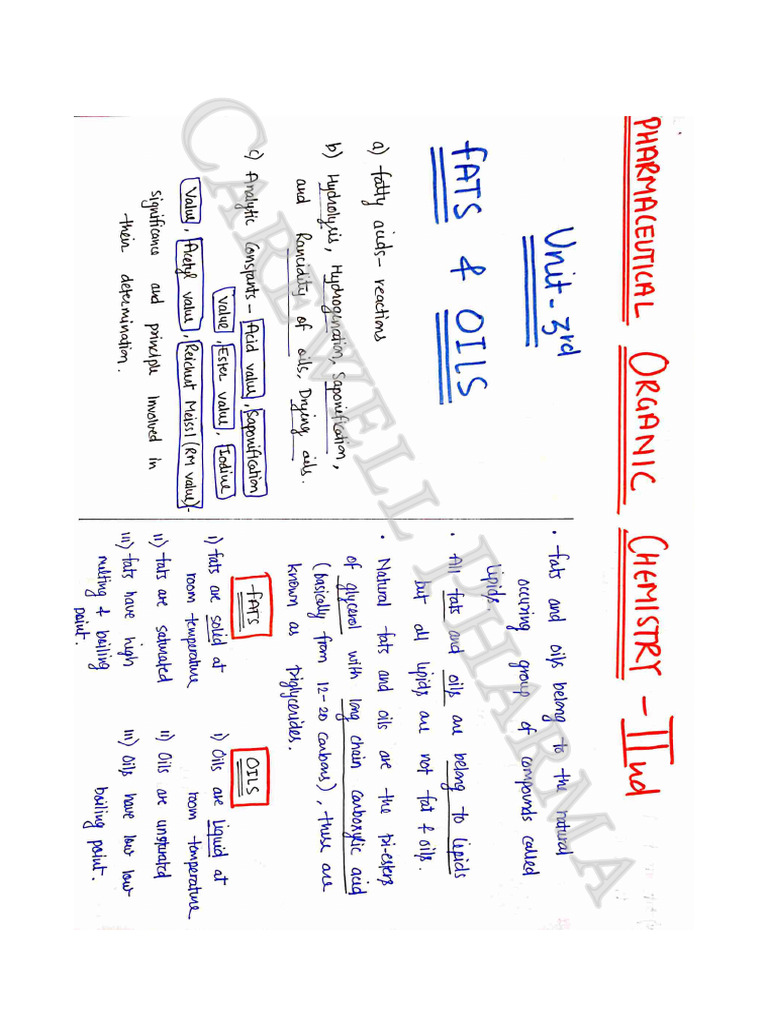 PHARMACEUTICAL ORGANIC CHEMISTRY - IInd
Unit-3rd
FATS & OILS
a) fatty acids- reactions
b) Hydrolysis, Hydrogenation, Saponification,
and Rancidity of oils, Drying oils.
c) Analytic Constants - Acid value, Saponification
value, Ester value, Iodine
value, Acetyl value, Reichert Meissl (RM value)-
significance and principle involved in
their determination.
• fats and oils belong to the natural
occuring group of compounds called
Lipids.
• All fats and oils are belong to lipids
but all lipids are not fat & oils.
• Natural fats and oils are the tri-esters
of glycerol with long chain carboxylic acid
(basically from 12-20 carbons), these are
known as triglycerides.
FATS
i) fats are solid at
room temperature
ii) fats are saturated
iii) fats have high
melting & boiling
point.
OILS
i) Oils are liquid at
room temperature
ii) Oils are unsturated
iii) Oils have low low
boiling point.
CAREWELL PHARMA